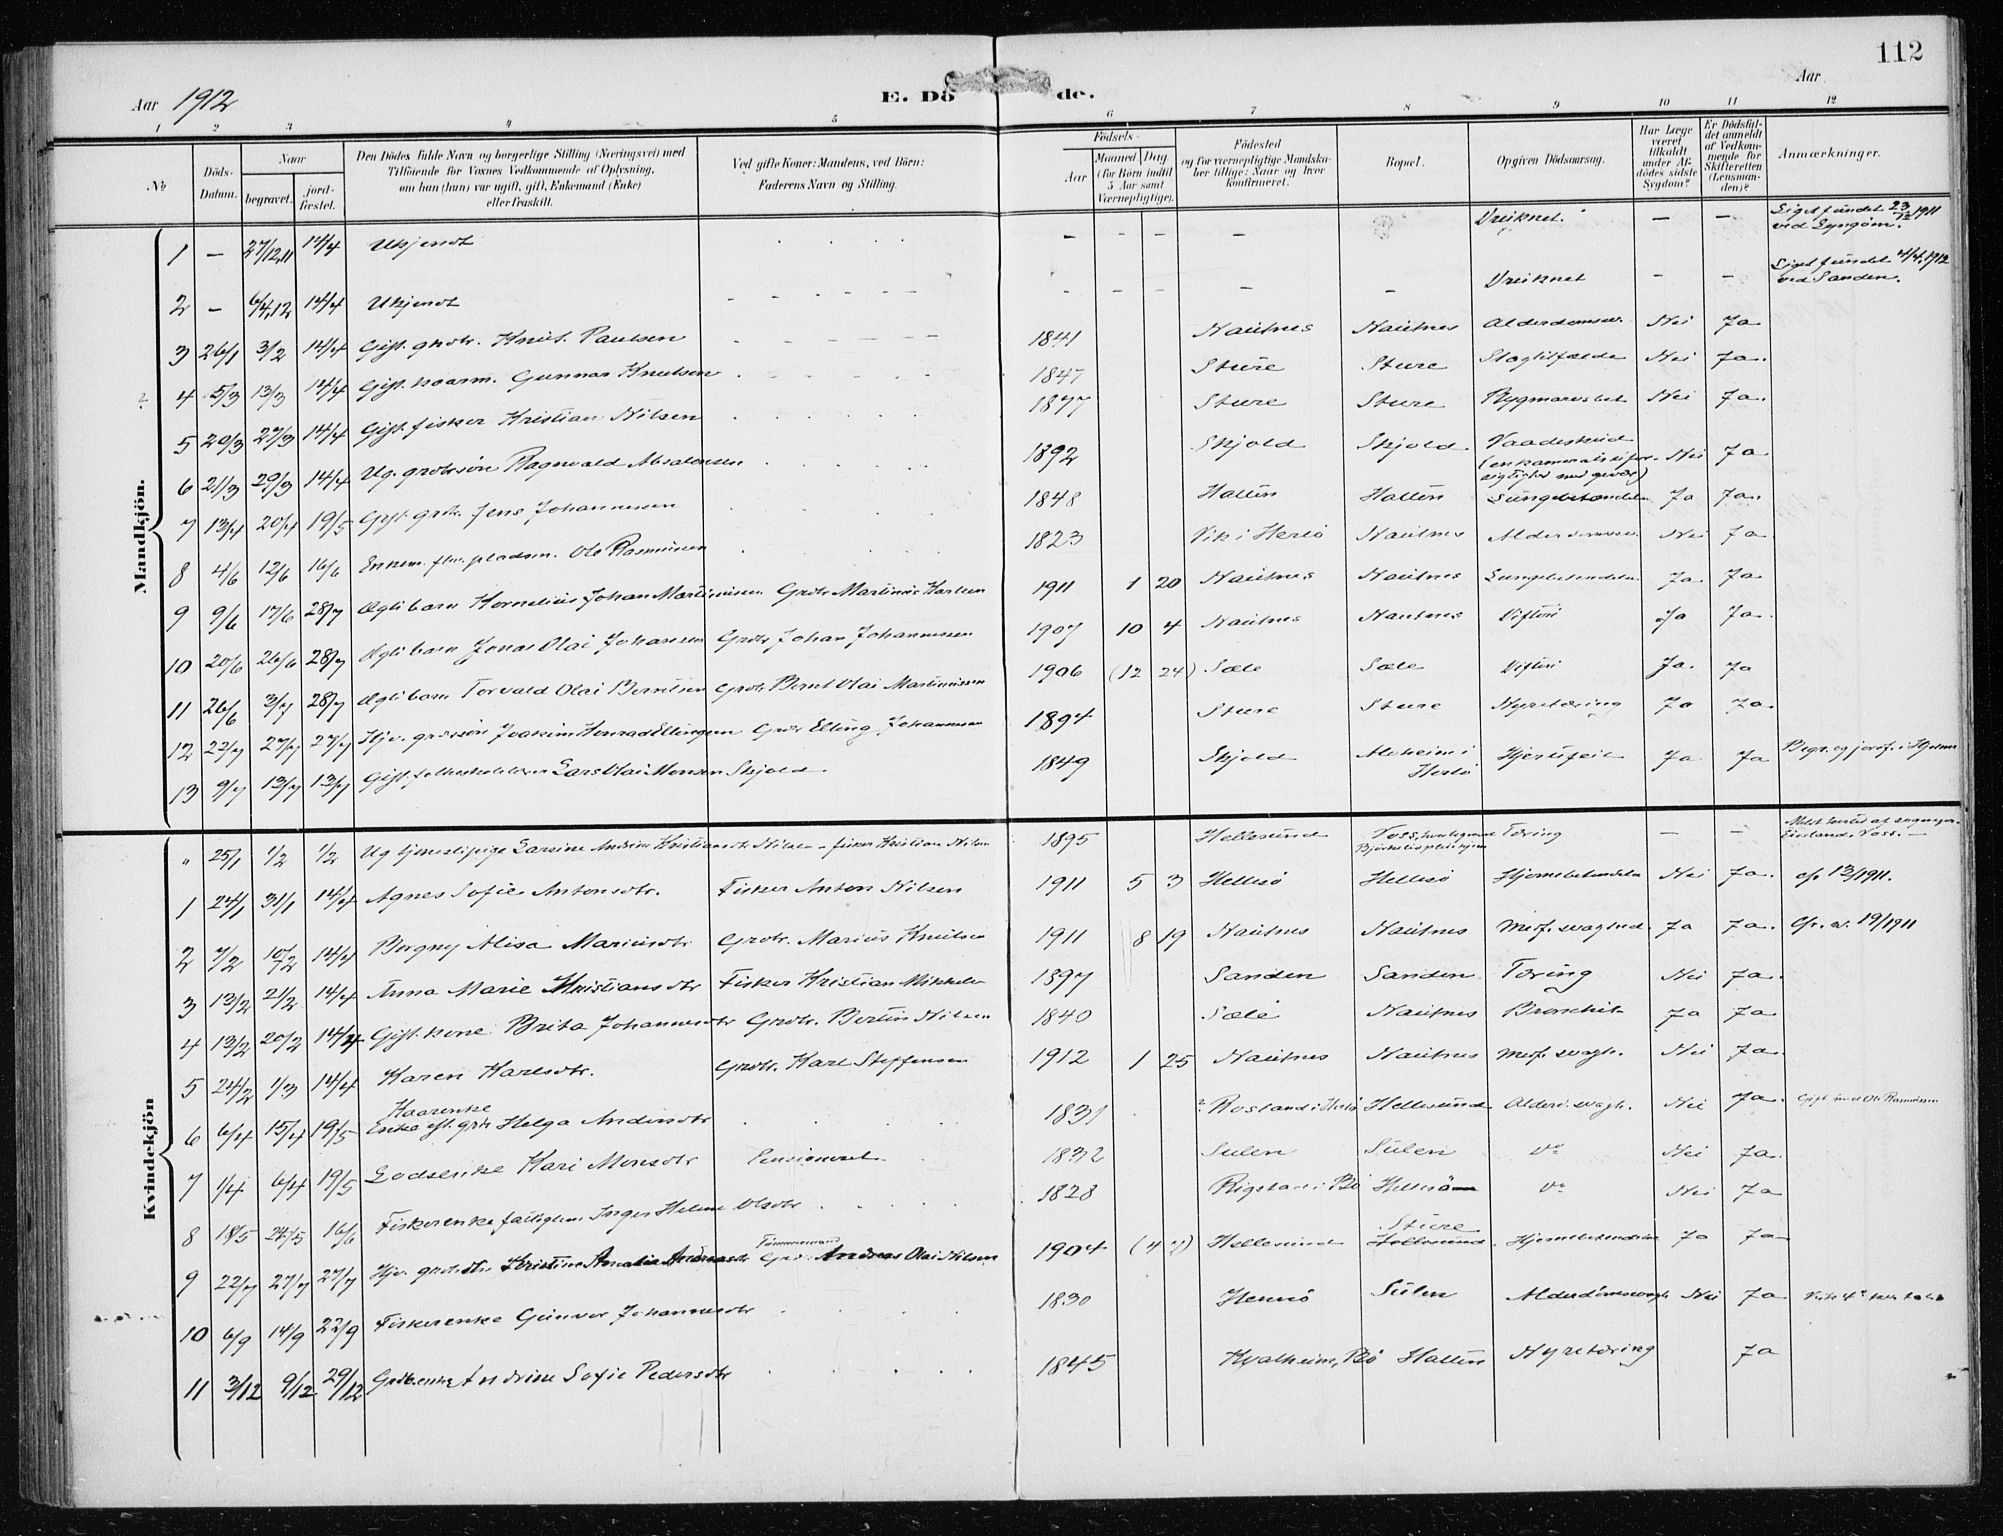 112
Aar 1912
E. Dö de.
Aar
1 2 3 4 5 6 7 8 9 10 11 12
No
Döds-Datum.
Naar
begravet. jord-fæstet.
Den Dödes fulde Navn og borgerlige Stilling (Næringsvei) med
Tilföiende for Voxnes Vedkommende af Oplysning,
om han (hun) var ugift, gift, Enkemand (Enke)
eller fraskilt.
Ved gifte Koner: Mandens, ved Börn:
Faderens Navn og Stilling.
Födsels-
Aar
Maaned Dag
(for Börn indtil
5 Aar samt
Værnepligtige).
Födested
og for værnepligtige Mandska-
ber tillige: Naar og hvor
konfirmeret.
Bopæl.
Opgiven Dödsaarsag.
Har Læge
været
tilkaldt
under Af-
dödes sidste
Sygdom?
Er Dödsfal-
det anmeldt
af Vedkom-
mende for
Skifteretten
(Lensman-
den)?
Anmærkninger.
Mandkjön.
1 — 27/12.11 14/4 Ukjendt — — — — Druknet. — — Liget fundet 23/12 1911 ved Lyngöin.
2 — 6/4.12 14/4 Ukjendt — — — — — Druknet — — Liget fundet 4/4.1912 ved Sanden.
3 26/1 3/2 14/4 Gift. grdbr. Knut Paulsen 1841 Nautnes Nautnes Alderdomssv. Nei Ja
4 5/3 13/3 14/4 Gift. kaarm. Gunnar Knutsen 1847 Sture Sture Slagtilfælde Nei Ja.
5 20/3 27/3 14/4 Gift. fisker Kristian Nilsen 1877 Sture Sture Rygmarvsbet Nei Ja.
6 21/3 29/3 14/4 Ug. grdbrsön Ragnvald Absalonsen 1892 Skjold Skjold. Vaadeskud (en kamerats ufor-sigtighed med gevær) Nei Ja
7 13/4 20/4 19/5 Gift grdbr. Jens Johannesen 1848 Hatten Hatten Lungebetændelse Ja Ja.
8 4/6 12/6 16/6 Enkem. fhv. pladsm. Ole Rasmussen 1823 Vik i Herlö Nautnes Alderdomssv. Nei Ja
9 9/6 17/6 28/7 Ægte barn Kornelius Johan Martinussen Grdbr Martinus Karlsen 1911 1 20 Nautnes Nautnes Lungebetændelse Ja. Ja
10 20/6 26/6 28/7 Ægte barn Jonas Olai Johansen Grdbr Johan Johannessen 1907 10 4 Nautnes Nautnes Difteri Ja Ja.
11 26/6 3/7 28/7 Ægte barn Torvald Olai Berntsen Grdbr Bernt Olai Martinussen 1906 (12 24) Sæle Sæle Difteri Ja. Ja
12 22/7 27/7 27/7 Hjv. grdbrsön Joakim Konrad Ellingsen Grdbr Elling Johannesen 1894 Sture Sture Nyretæring Ja Ja.
13 9/7 13/7 13/7 Gift. folkeskolelærer Lars Olai Monsen Skjold. 1849 Skjold Alvheim i Herlö Hjertefeil Ja Ja Begr. og jordf. i Hjelme
Kvindekjön
" 25/1 1/2 1/2 Ug tjenestepige Larsine Andrine Kristiansdtr Nilsen – fisker Kristian Nilsen 1895 Hellesund Voss, Tæring — — Voss. —
1 24/1 31/1 14/4 Agnes Sofie Antonsdtr. Fisker Anton Nilsen 1911 5 3 Hellesö Hellesö Hjernebetændelse Nei Ja. cfr 13/1911.
2 7/2 10/2 14/4 Borgny Alisa Mariusdtr Grdbr. Marius Knutsen 1911 8 19 Nautnes Nautnes Medf. svaghed. Ja Ja. Cfr. nr. 19/1911
3 13/2 21/2 14/4 Anna Marie Kristiansdtr Fisker Kristian Mikkelsen 1897 Sanden Sanden Tæring Nei Ja.
4 13/2 20/2 14/4 Gift. kone Brita Johannesdtr Grdbr. Bertin Nilsen 1840 Sæle Nautnes Bronchit Ja Ja
5 24/2 1/3 14/4 Karen Karlsdtr. Grdbr. Karl Steffensen 1912 1 25 Nautnes Nautnes Medf. svagh. Nei Ja.
6 6/4 15/4 19/5 Kaarenke Enke eft. grdbr Helga Andersdtr 1831 ? Rosland i Herlö Hellesund Alderd. svagh. Nei Ja. Gift med Ole Rasmussen
7 1/4 6/4 19/5 Lodsenke Kari Monsdtr Pensioneret. 1832 Sulen Sulen Do Nei Ja.
8 18/5 24/5 16/6 Fiskerenke fattiglem Inger Helene Olsdtr 1828 Rigstad i Bö Hellesöen Do Nei Ja
9 22/7 27/7 27/7 Hjv. grdbrdtr. Kristine Amalia Andreasdtr Tömmermand Grdbr. Andreas Olai Nilsen 1904 (4 7) Hellesund Sture Hellesund. Hjernebetændelse Ja Ja
10 6/9 14/9 22/9 Fiskerenke Gunvor Johannesdtr 1830 Hernö Sulen Alderdomssvagh Nei Ja
11 3/12 9/12 29/12 Grdbr.enke Andrine Sofie Pedersdtr 1845 Kvalheim, Bö Hatten Nyretæring Ja